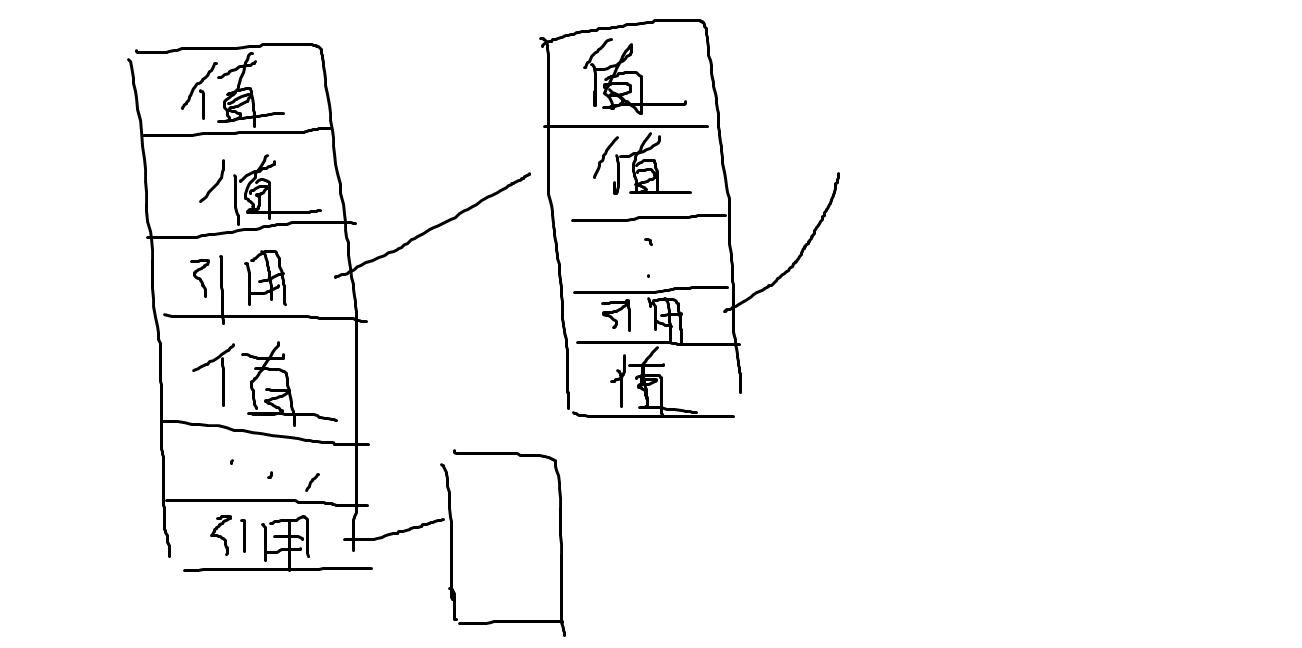 值
值
引用
值
...
引用
值
值
:
引用
值